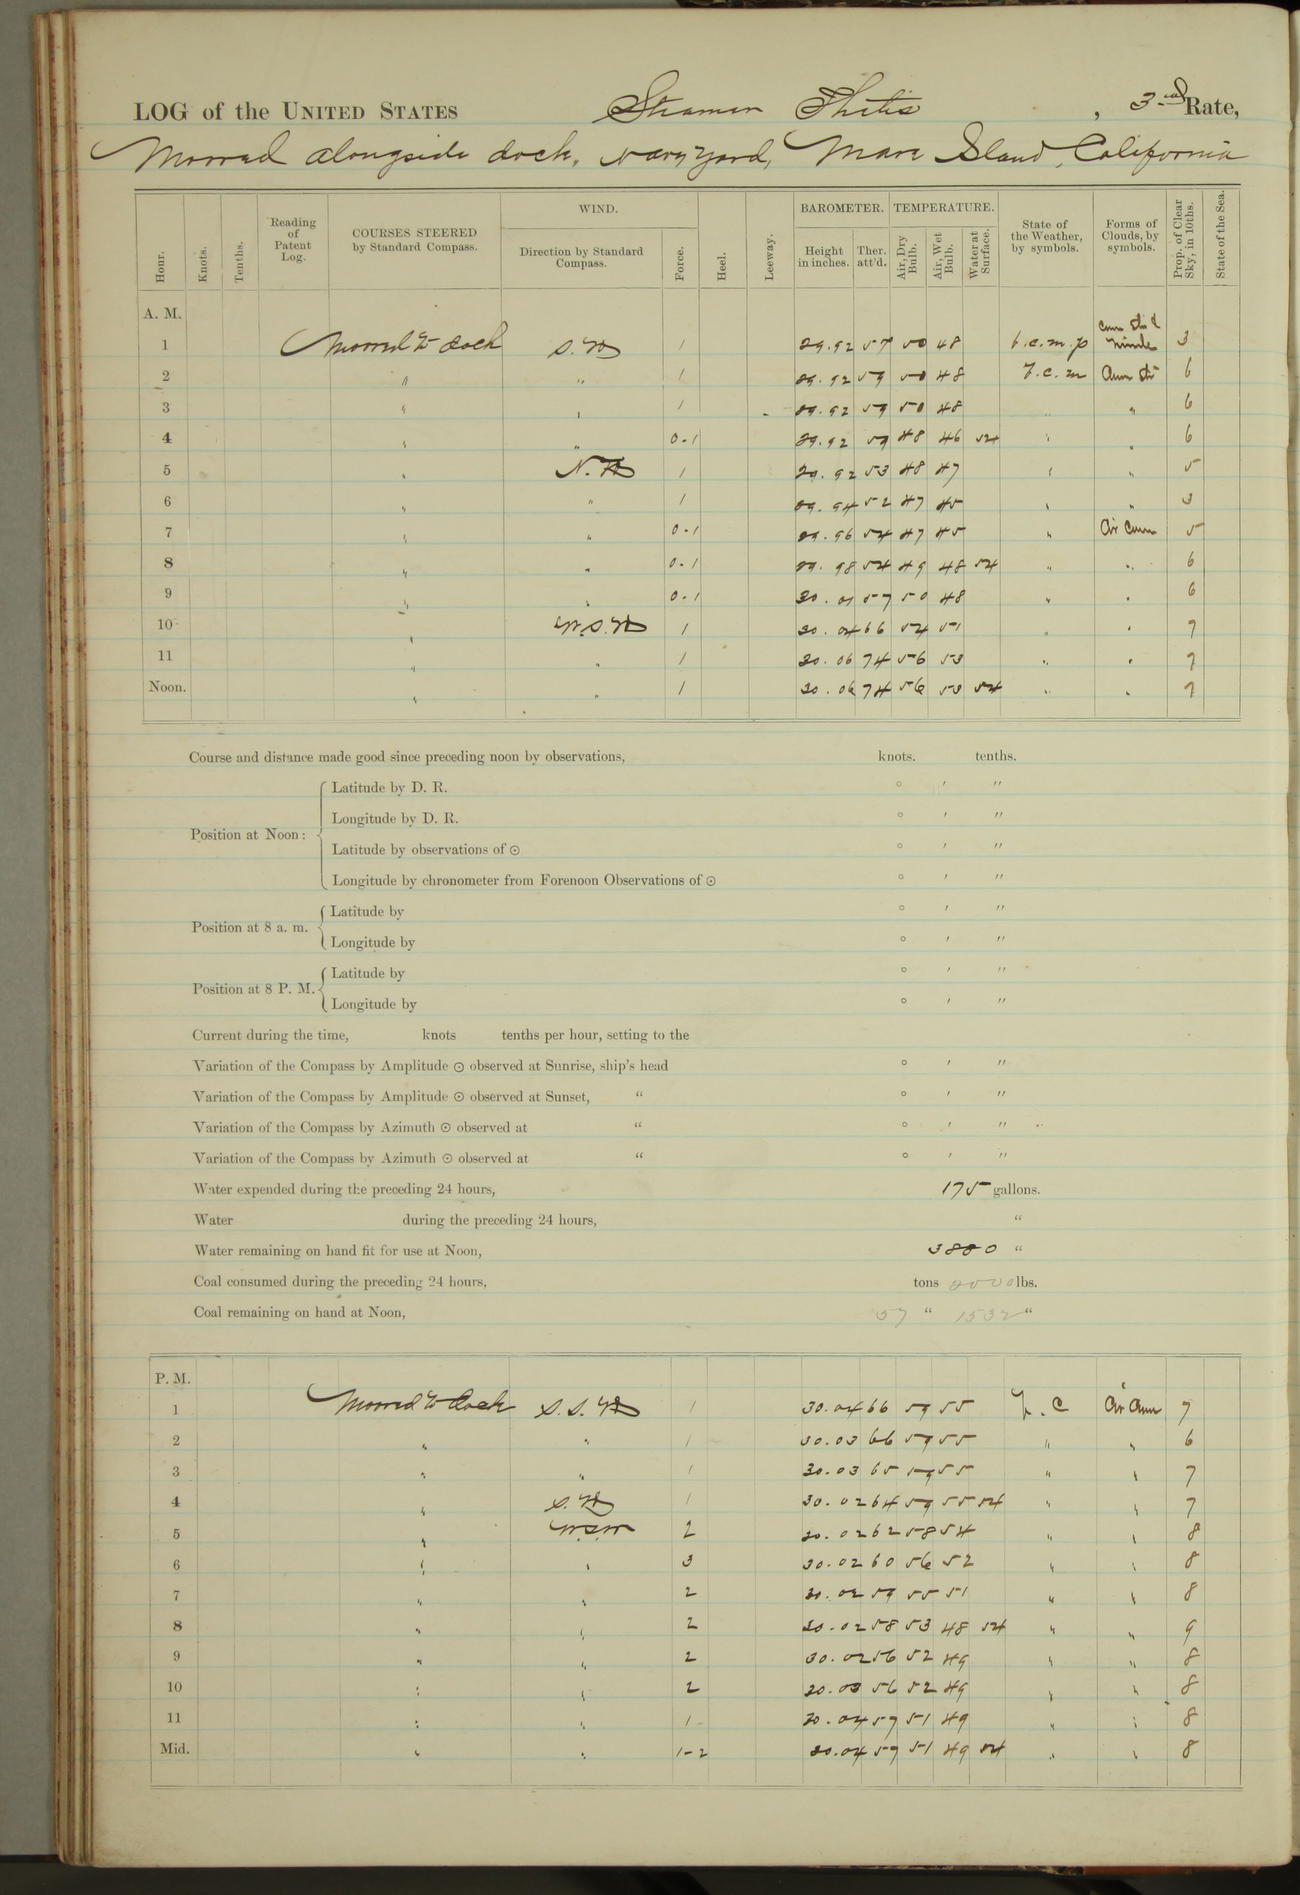 LOG of the UNITED STATES Steamer Thetis , 3rd Rate,
Moored alongside dock, Navy Yard, Mare Island, California
WIND. BAROMETER. TEMPERATURE.
Hour. Knots. Tenths. Reading of Patent Log. COURSES STEERED by Standard Compass. Direction by Standard Compass. Force. Heel. Leeway. Height in inches. Ther. att'd. Air, Dry Bulb. Air, Wet Bulb. Water at Surface. State of the Weather, by symbols. Forms of Clouds, by symbols. Prop. of Clear Sky, in 10ths. State of the Sea.
A. M.
1 Moored to dock S.W 1 29.92 57 50 48 b.c.m.p Cum Str & Nimbs 3
2 " " 1 29.92 59 50 48 b.c.m Cum Str 6
3 " " 1 29.92 59 50 48 " " 6
4 " " 0-1 29.92 59 48 46 54 " " 6
5 " N.W 1 29.92 53 48 47 " " 5
6 " " 1 29.94 52 47 45 " " 3
7 " " 0-1 29.96 54 47 45 " Cir Cum 5
8 " " 0-1 29.98 54 49 48 54 " " 6
9 " " 0-1 30.01 57 50 48 " " 6
10 " W.S.W 1 30.04 66 54 51 " " 7
11 " " 1 30.06 74 56 53 " " 7
Noon. " " 1 30.06 74 56 53 54 " " 7
Course and distance made good since preceding noon by observations, knots. tenths.
Position at Noon: Latitude by D. R. ° ′ ″
Longitude by D. R. ° ′ ″
Latitude by observations of ☉ ° ′ ″
Longitude by chronometer from Forenoon Observations of ☉ ° ′ ″
Position at 8 a. m. Latitude by ° ′ ″
Longitude by ° ′ ″
Position at 8 P. M. Latitude by ° ′ ″
Longitude by ° ′ ″
Current during the time, knots tenths per hour, setting to the
Variation of the Compass by Amplitude ☉ observed at Sunrise, ship's head ° ′ ″
Variation of the Compass by Amplitude ☉ observed at Sunset, " ° ′ ″
Variation of the Compass by Azimuth ☉ observed at " ° ′ ″
Variation of the Compass by Azimuth ☉ observed at " ° ′ ″
Water expended during the preceding 24 hours, 175 gallons.
Water during the preceding 24 hours, "
Water remaining on hand fit for use at Noon, 3800 "
Coal consumed during the preceding 24 hours, tons 2000 lbs.
Coal remaining on hand at Noon, 57 " 1532 "
P. M.
1 Moored to dock S.S.W 1 30.04 66 59 55 b.c Cir Cum 7
2 " " 1 30.03 66 59 55 " " 6
3 " " 1 30.03 65 59 55 " " 7
4 " S.W 1 30.02 64 59 55 54 " " 7
5 " W.S.W 2 30.02 62 58 54 " " 8
6 " " 3 30.02 60 56 52 " " 8
7 " " 2 30.02 59 55 51 " " 8
8 " " 2 30.02 58 53 48 54 " " 9
9 " " 2 30.02 56 52 49 " " 8
10 " " 2 30.03 56 52 49 " " 8
11 " " 1 30.04 57 51 49 " " 8
Mid. " " 1-2 30.04 57 51 49 54 " " 8